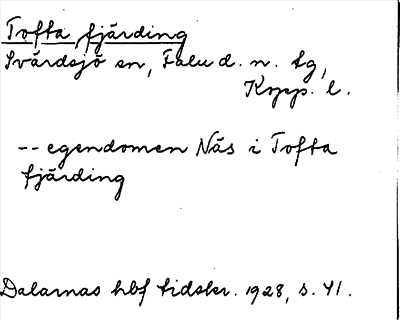 Tofta fjärding
Svärdsjö sn, Falu d. n. tg,
Kopp. l.
-- egendomen Näs i Tofta
fjärding
Dalarnas hbf tidskr. 1928, s. 41.